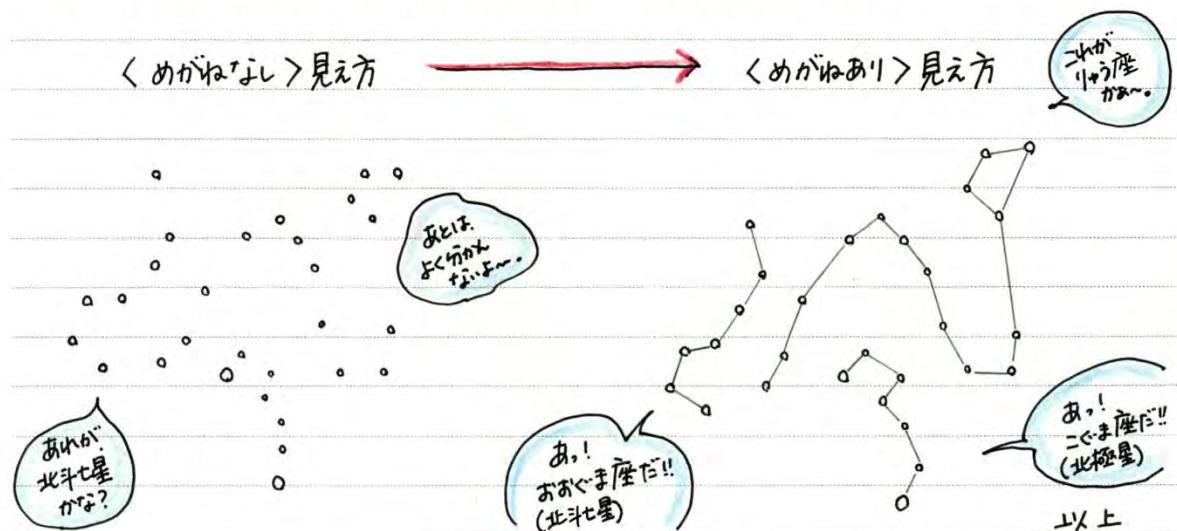 〈めがねなし〉見え方
〈めがねあり〉見え方
これが
りゅう座
かぁ〜。
あとは、
よく分かん
ないよ〜。
あれが
北斗七星
かな?
あっ!
おおぐま座だ!!
(北斗七星)
あっ!
こぐま座だ!!
(北極星)
以上